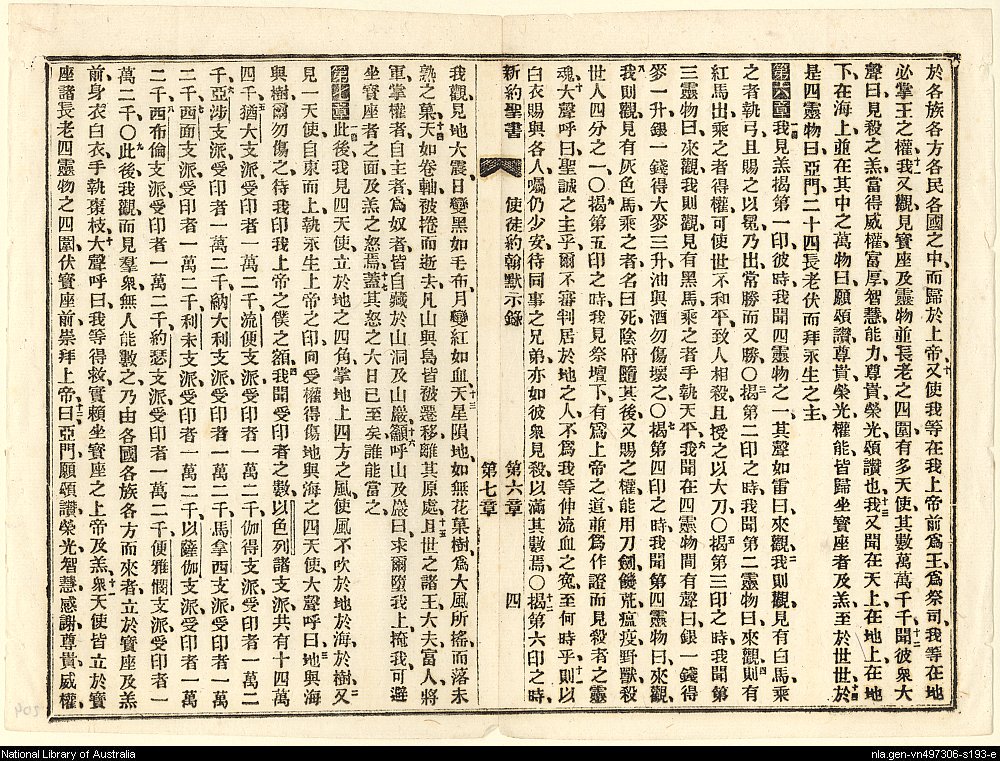 於各族各方各民各國之中、而歸於上帝、又使我等在我上帝前爲王、爲祭司、我等在地
必掌王之權、我又觀見寶座及靈物並長老之四圍有多天使、其數萬萬千千、聞彼衆大
聲曰、見殺之羔、當得威權富厚智慧能力尊貴榮光頌讚也、我又聞在天上在地上在地
下在海上並在其中之萬物曰、願頌讚尊貴榮光權能、皆歸坐寶座者及羔、至於世世、於
是四靈物曰、亞門、二十四長老伏而拜永生之主、
第六章 我見羔揭第一印、彼時我聞四靈物之一、其聲如雷曰、來觀、我則觀見有白馬、乘
之者執弓、且賜之以冕、乃出常勝而又勝、〇揭第二印之時、我聞第二靈物曰、來觀、則有
紅馬出、乘之者得權可使世不和平、致人相殺、且授之以大刀、〇揭第三印之時、我聞第
三靈物曰、來觀、我則觀見有黑馬、乘之者手執天平、我聞在四靈物間有聲曰、銀一錢得
麥一升、銀一錢得大麥三升、油與酒勿傷壞之、〇揭第四印之時、我聞第四靈物曰、來觀、
我則觀見有灰色馬、乘之者名曰死、陰府隨其後、又賜之權、能用刀劍饑荒瘟疫野獸、殺
世人四分之一、〇揭第五印之時、我見祭壇下、有爲上帝之道、並爲作證而見殺者之靈
魂、大聲呼曰、聖誠之主乎、爾不審判居於地之人、不爲我等伸流血之寃、至何時乎、則以
白衣賜與各人、囑仍少安、待同事之兄弟、亦如彼衆見殺、以滿其數焉、〇揭第六印之時、
新約聖書 使徒約翰默示錄 第六章 四
第七章
我觀見地大震、日變黑如毛布、月變紅如血、天星隕地、如無花菓樹、爲大風所搖、而落未
熟之菓、天如卷軸被捲而逝去、凡山與島皆被遷移、離其原處、且世之諸王、大夫、富人、將
軍、掌權者、自主者、爲奴者、皆自藏於山洞及山巖、籲呼山及巖曰、求爾墮我上、掩我、可避
坐寶座者之面、及羔之怒焉、蓋其怒之大日已至矣、誰能當之、
第七章 此後我見四天使、立於地之四角、掌地上四方之風、使風不吹於地、於海、於樹、又
見一天使、自東而上、執永生上帝之印、向受權得傷地與海之四天使、大聲呼曰、地與海
與樹、爾勿傷之、待我印我上帝之僕之額、我聞受印者之數、以色列諸支派共有十四萬
四千、猶大支派受印者一萬二千、流便支派受印者一萬二千、伽得支派受印者一萬二
千、亞涉支派受印者一萬二千、納大利支派受印者一萬二千、馬拿西支派受印者一萬
二千、西面支派受印者一萬二千、利未支派受印者一萬二千、以薩伽支派受印者一萬
二千、西布倫支派受印者一萬二千、約瑟支派受印者一萬二千、便雅憫支派受印者一
萬二千、〇此後我觀、而見羣衆無人能數之、乃由各國各族各方而來者、立於寶座及羔
前、身衣白衣、手執棗枝、大聲呼曰、我等得救、實賴坐寶座之上帝及羔、衆天使皆立於寶
座諸長老四靈物之四圍、伏寶座前、崇拜上帝曰、亞門、願頌讚榮光智慧感謝尊貴威權、
National Library of Australia
nla.gen-vn497306-s193-e